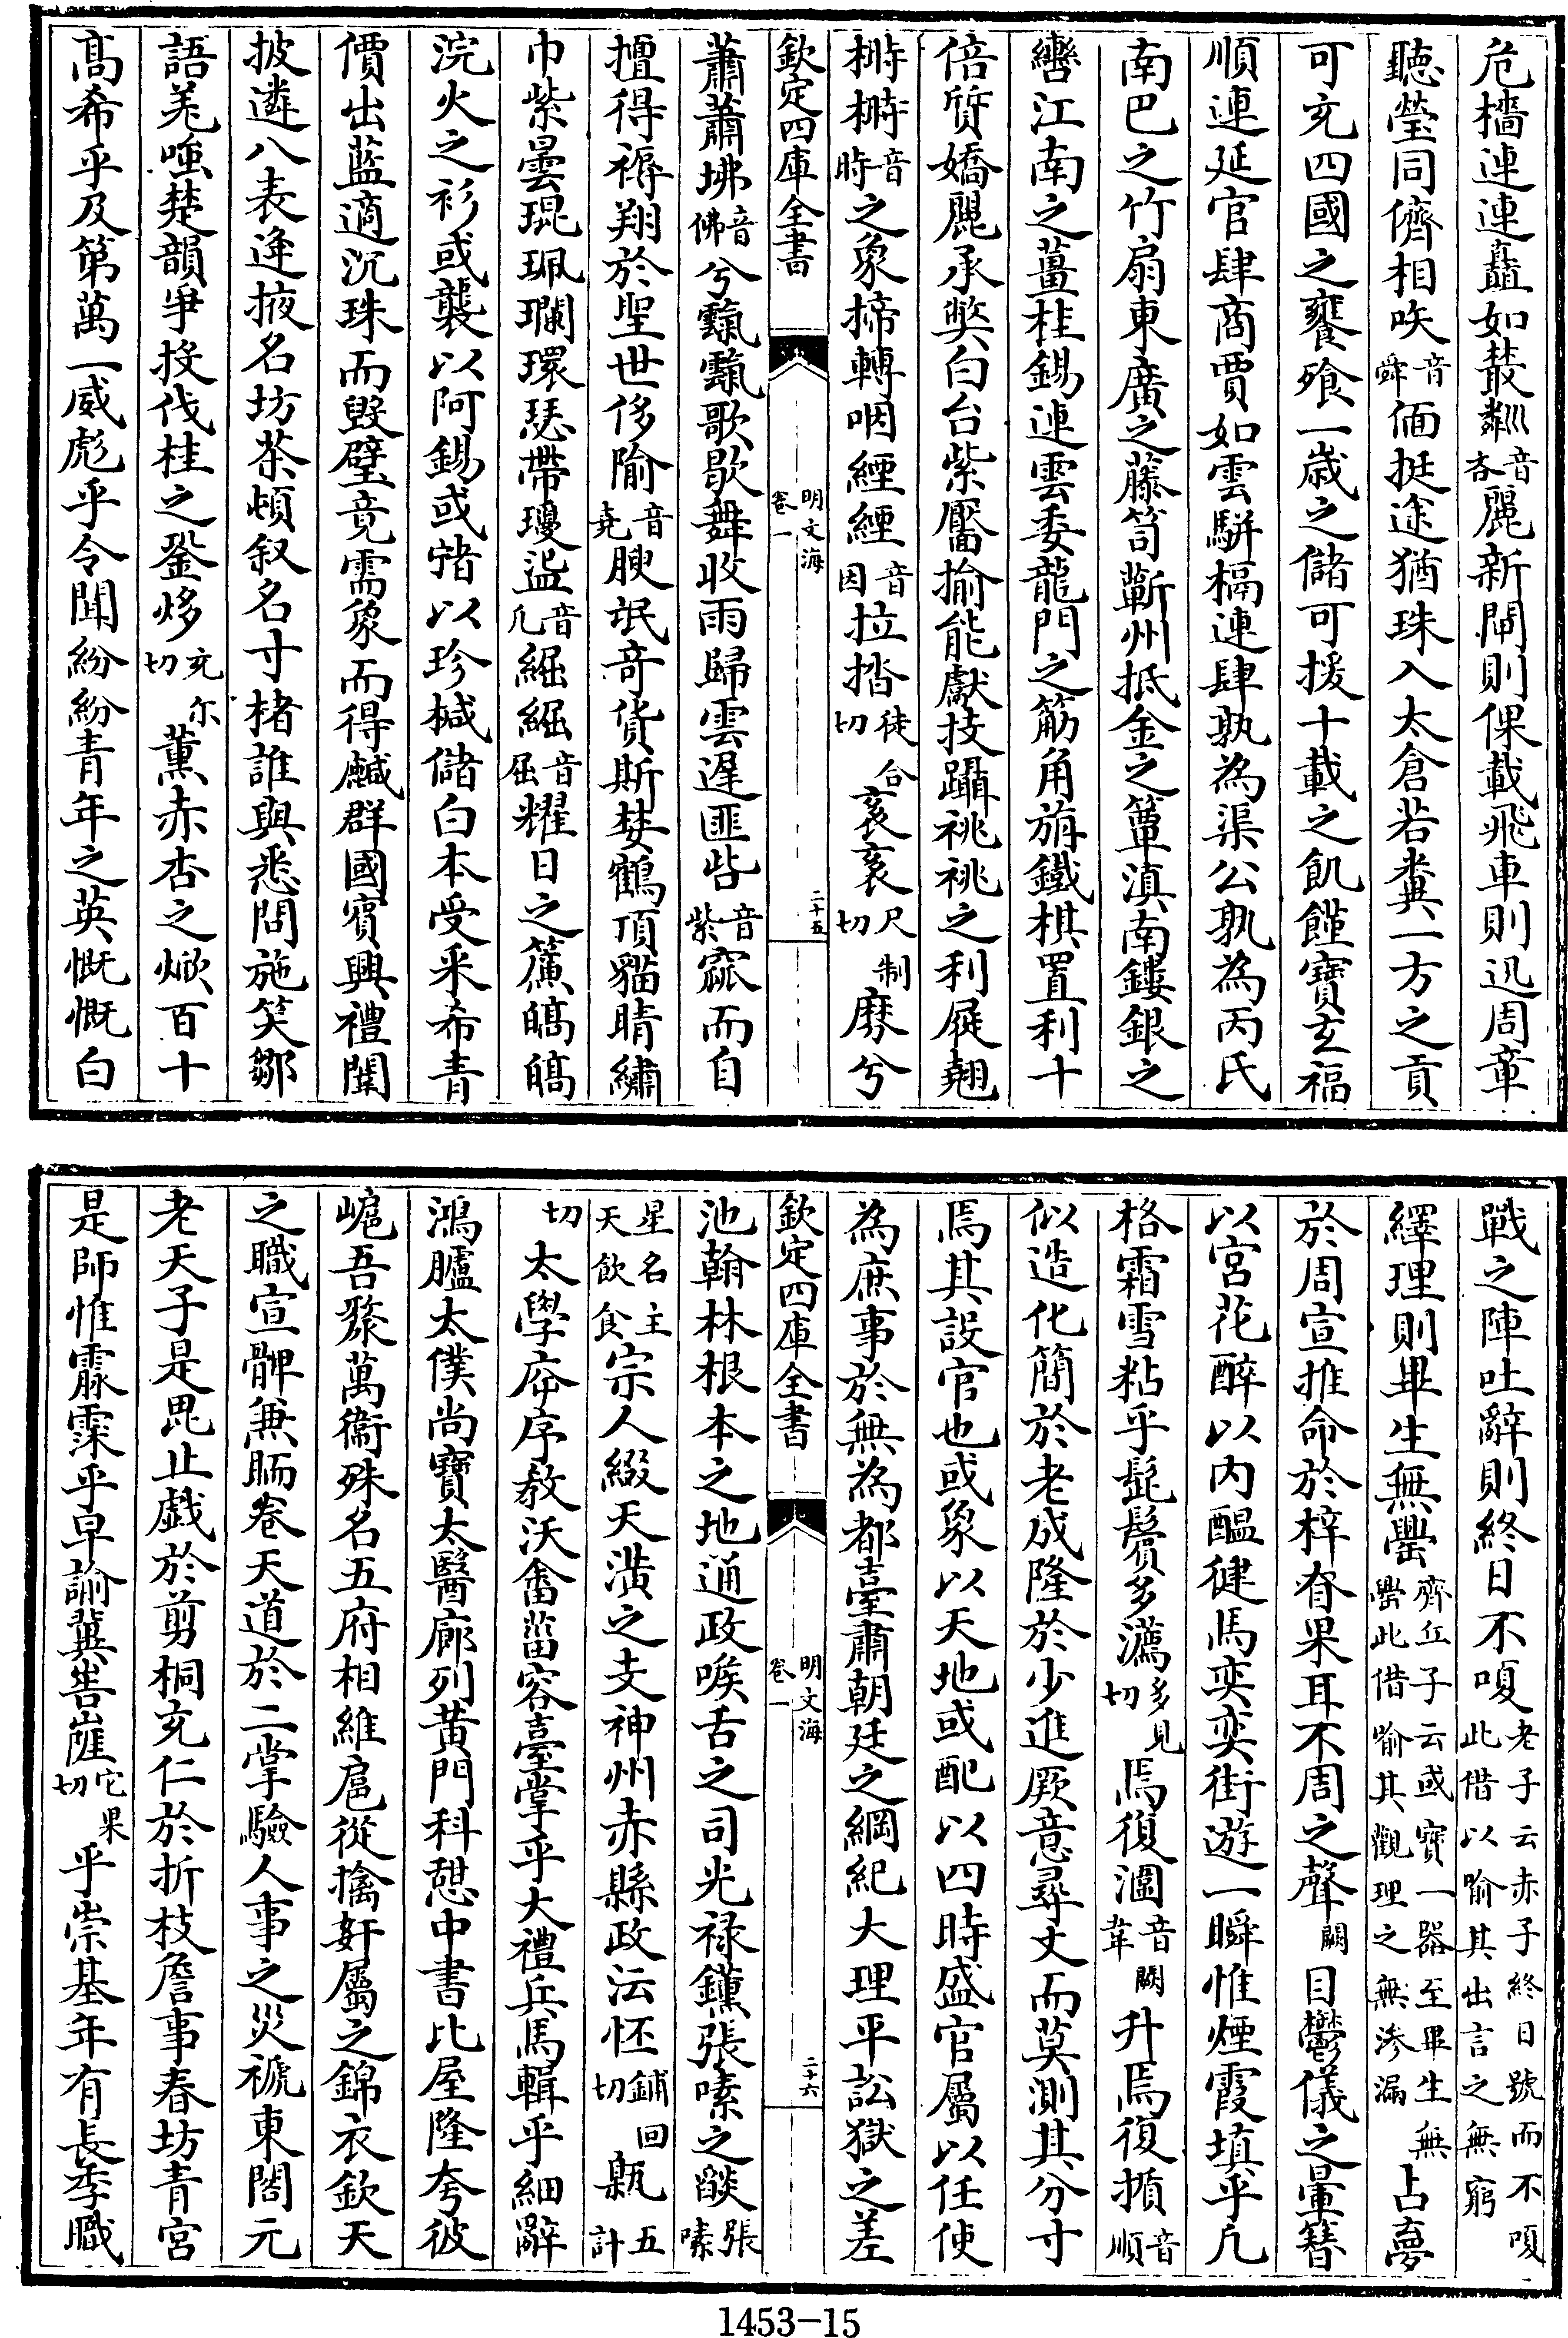 危檣連連矗如叢㸚音吝麗新閘則倮載飛車則迅周章
聽瑩同儕相㕧音舜偭挺途猶珠入太倉若糞一方之貢
可充四國之饔飧一歳之儲可援十載之飢饉寳玄福
順連延官肆商賈如雲駢槅連肆孰為渠公孰為丙氏
南巴之竹扇東廣之藤笥蘄州抵金之簟滇南鏤銀之
轡江南之薑桂錫連雲委龍門之筋角旃鐵棋置利十
倍質嬌麗承獘白台紫靨揄能獻技躡祧祧之利屣翹
榯榯音時之象掃轉咽緸緸音因拉揩徒合切㐮㐮尺制切縻兮
欽定四庫全書 明文海 卷一 二十五
蕭蕭坲音佛兮霼霼歌歇舞收雨歸雲遲匪呰音紫窳而自
擅得褥翔於聖世侈隃音堯腴氓竒貨斯婪鶴頂貓睛繡
巾紫曇琨珮瓓環瑟帶瓊㿿音几䋧䋧音屈耀日之簾皜皜
浣火之衫或襲以阿錫或㡯以珍椷儲白本受采希青
價出藍適沉珠而毀璧竟需象而得鹹群國賓興禮闈
披遴八表逄掖名坊茶頓叙名寸楮誰與悉問施笑鄒
語羌嗤楚韻爭投伐桂之銎㶴充尓切薰赤杏之焮百十
髙希乎及第萬一威彪乎令聞紛紛青年之英慨慨白
戰之陣吐辭則終日不嗄老子云赤子終日號而不嗄此借以喻其出言之無窮
繹理則畢生無舋齊丘子云或寳一器至畢生無舋此借喻其觀理之無滲漏占夢
於周宣推命於梓脊果耳不周之聲闕目鬱儀之暈簪
以宮花醉以内醖健馬奕奕街遊一瞬惟煙霞填乎凡
格霜雪粘乎髭鬢多㶆多見切焉復潿音韋闕升焉復揗音順
似造化簡於老成隆於少進厥意尋丈而莫測其分寸
焉其設官也或象以天地或配以四時盛官屬以任使
為庶事於無為都臺肅朝廷之綱紀大理平訟獄之差
欽定四庫全書 明文海 卷一 二十六
池翰林根本之地通政喉舌之司光禄鑂張嗉之𦦨張嗉
星名主天飲食宗人綴天潢之支神州赤縣政沄怌鋪回切甈五計
切太學庠序敎沃畬菑容臺掌乎大禮兵馬輯乎細辭
鴻臚太僕尚寳太醫廊列黄門科憩中書比屋隆夸彼
巵吾猣萬衞殊名五府相維扈從擒奸屬之錦衣欽天
之職宣髀兼腼卷天道於二掌驗人事之災禠東閤元
老天子是毘止戯於剪桐充仁於折枝詹事春坊青宮
是師惟霢霂乎早諭冀㟯㟎它果切乎崇基年有長季職
1453-15